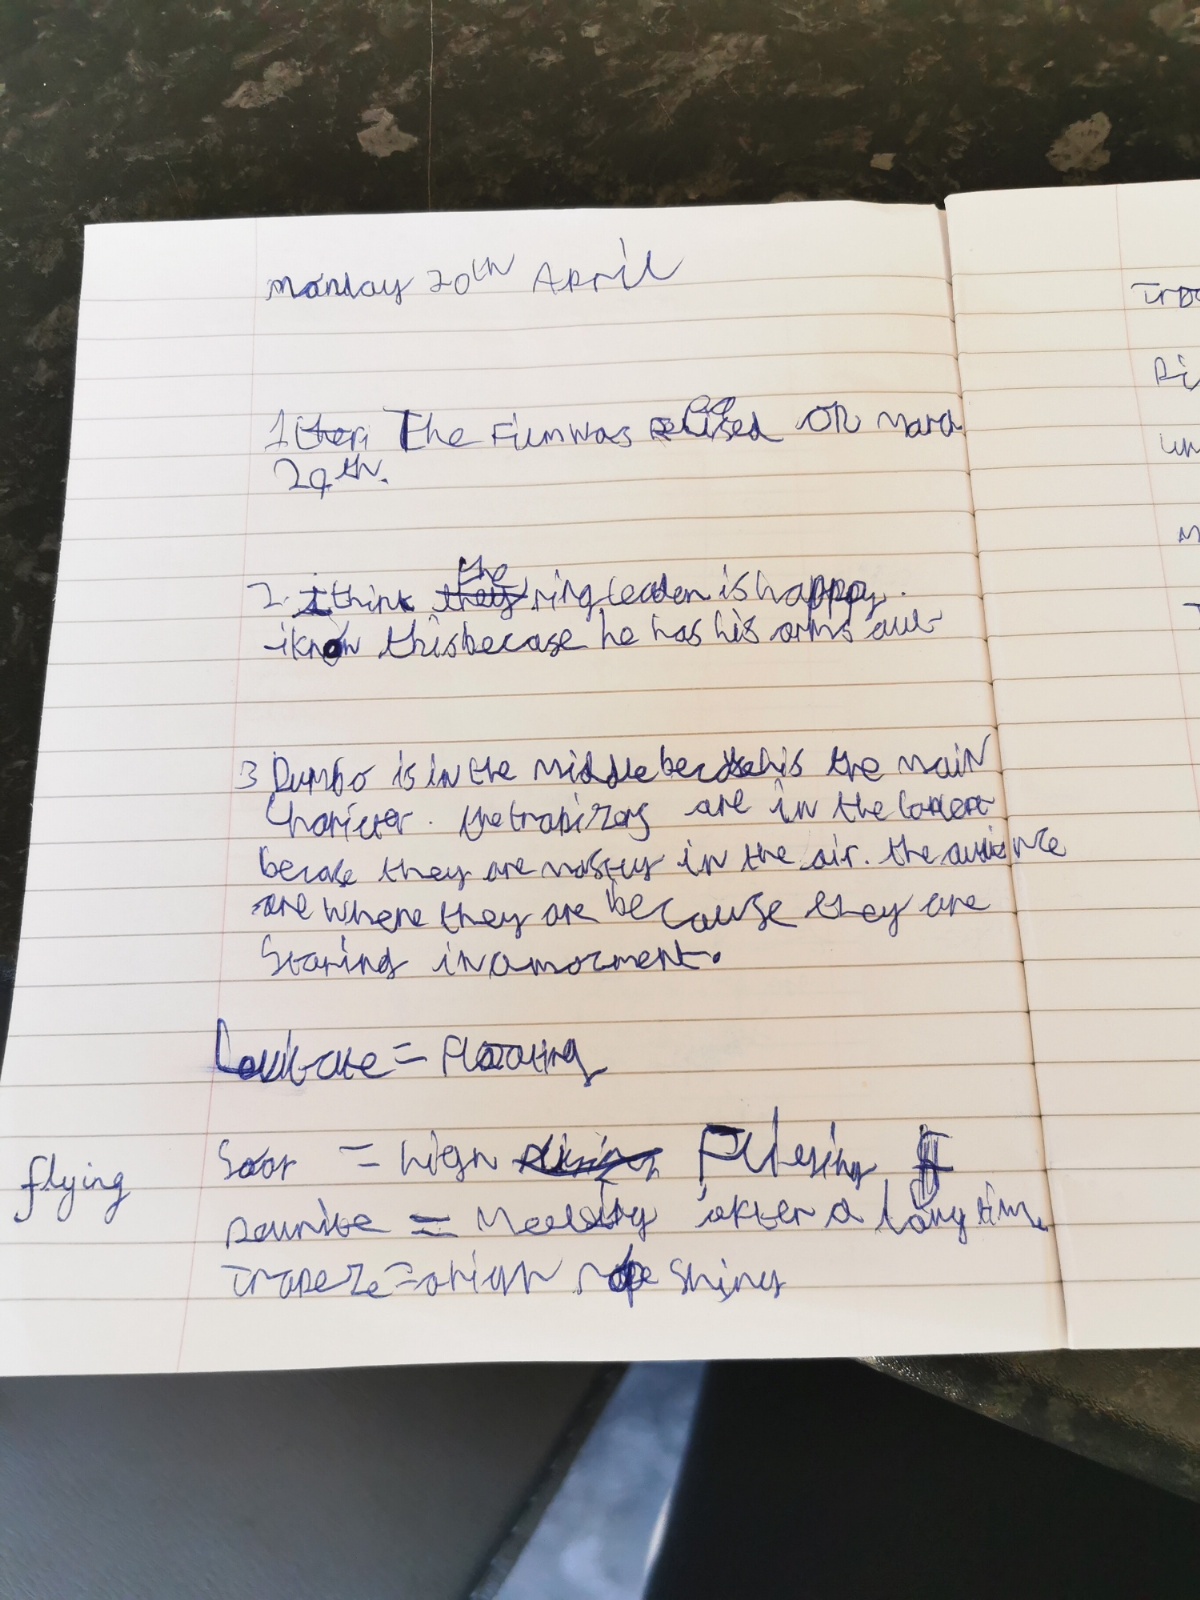 Monday 20th April
1 The Film was on March
29th.
2. I think the ring leader is happy.
i know this becase he has his arms out
3 Dumbo is in the middle becase his the main
are in the
becase they are mostly in the air. the
are where they are because they are
Staring in amorment.
= Floating
flying
Soar = high Flying
reunite = after a long time
Trapeze = a high rope